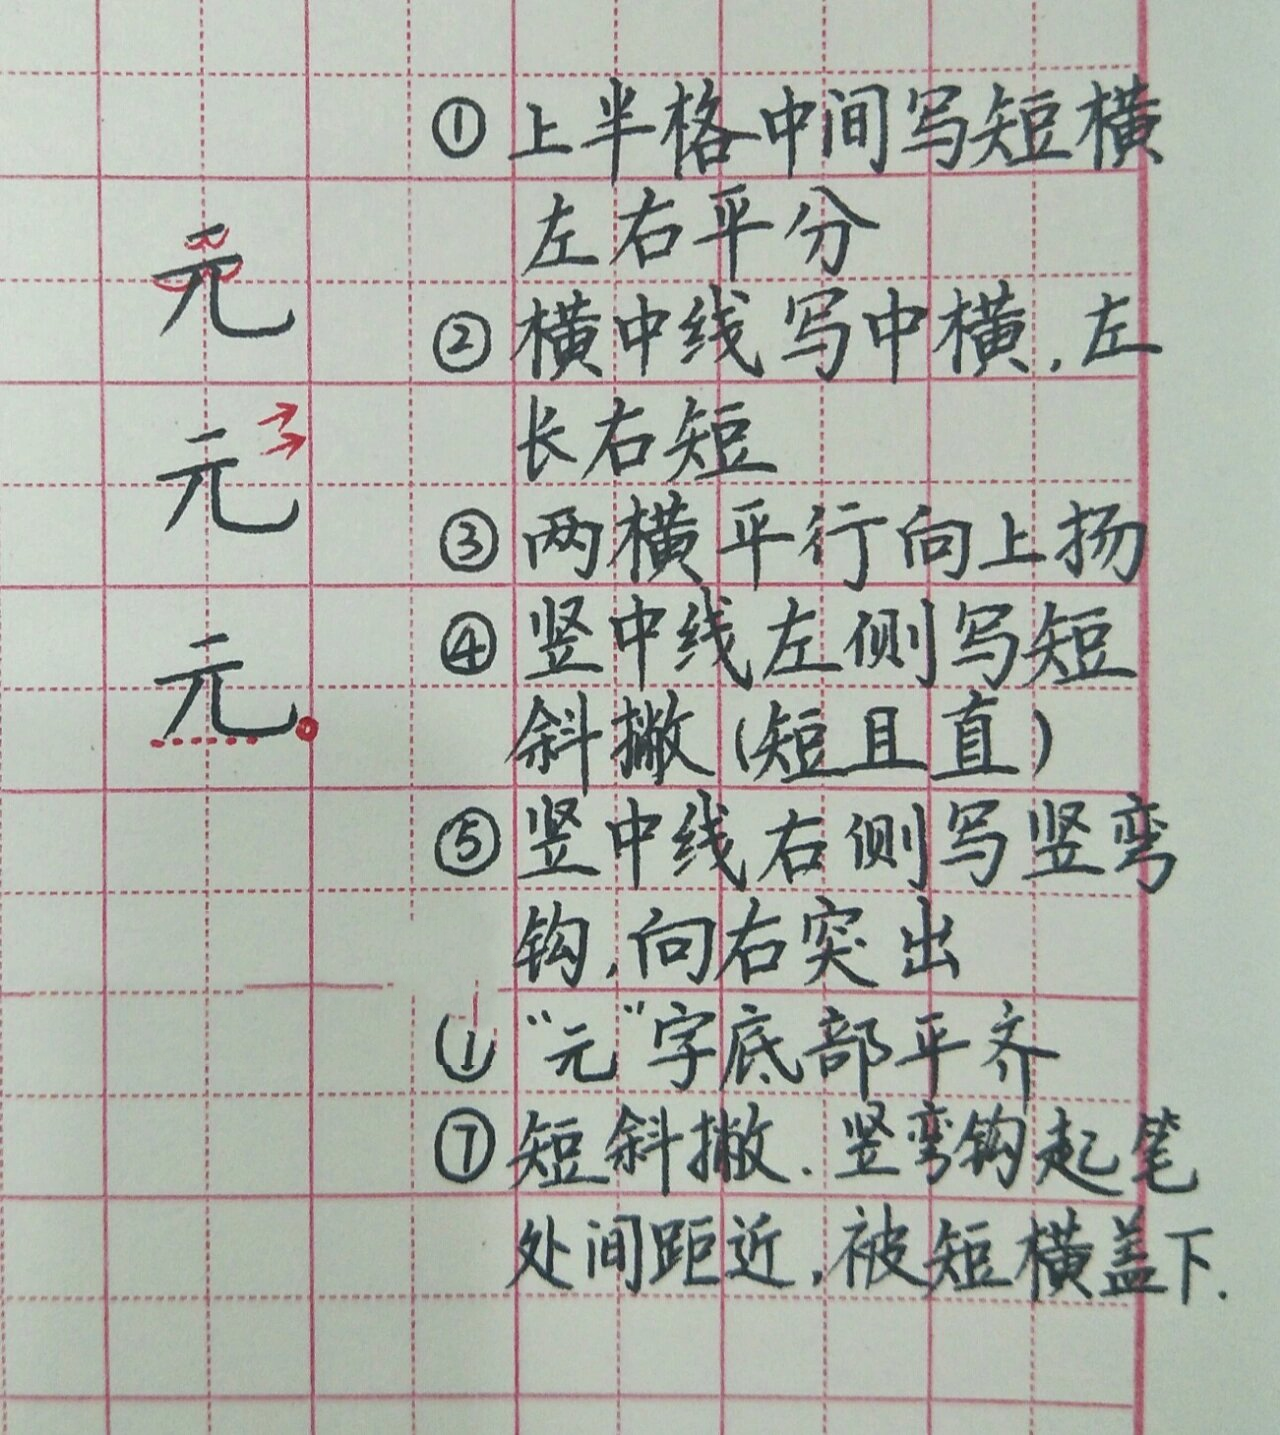 ①上半格中间写短横
左右平分
元
②横中线写中横.左
长右短
元
③两横平行向上扬
④竖中线左侧写短
元
斜撇(短且直)
⑤竖中线右侧写竖弯
钩.向右突出
①“元”字底部平齐
⑦短斜撇.竖弯钩起笔
处间距近,被短横盖下.